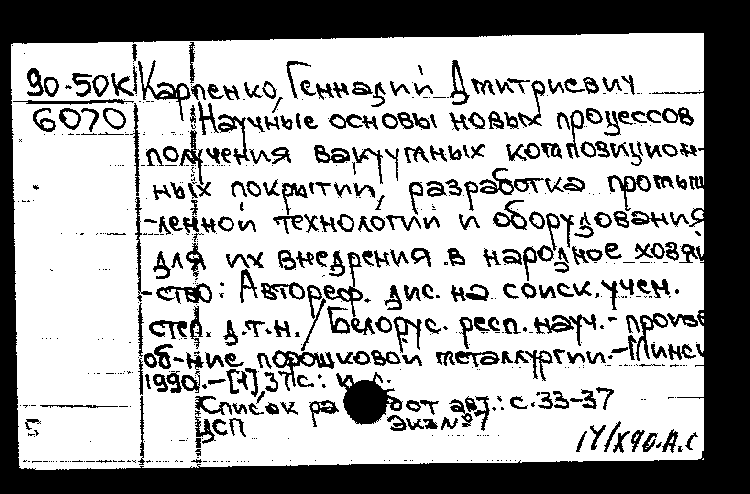 90-50К Карпенко, Геннадий Дмитриевич
6070 Научные основы новых процессов
получения вакуумных композицион-
ных покрытий, разработка промыш
-ленной технологии и оборудования
для их внедрения в народное хозяй
-ство: Автореф. дис. на соиск. учен.
степ. д.т.н. Белорус. респ. науч.- произв
об-ние порошковой металлургии.-Минск
1990.-[1],37с.: ил.
Список работ авт.: с.33-37
ДСП Экз №7